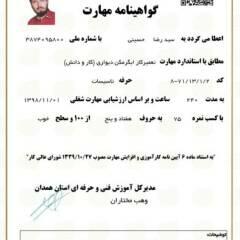 گواهینامه مهارت
اعطا می گردد به سید رضا حسینی با شماره ملی ۳۸۷۴۰۹۵۸۰۰
مطابق با استاندارد مهارت تعمیرکار آبگرمکن دیواری (کار و دانش)
کد ۸-۷۱/۱۳/۱/۲ حرفه تاسیسات
به مدت ۲۴۰ ساعت و بر اساس ارزشیابی مهارت شغلی ۱۳۹۸/۱۱/۰۱
با کسب نمره ۷۵ به حروف هفتاد و پنج از ۱۰۰ و سطح خوب
به استناد ماده ۶ آیین نامه کارآموزی و افزایش مهارت مصوب ۱۳۴۹/۱۰/۲۷ شورای عالی کار
مدیرکل آموزش فنی و حرفه ای استان همدان
وهب مختاران